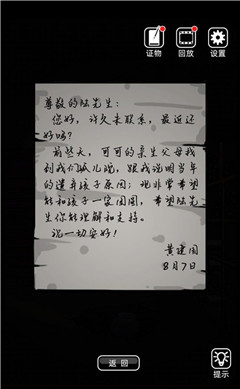 证物
回放
设置
尊敬的陆先生：
您好，许久未联系，最近还
好吗？
前些天，可可的亲生父母找
到我们孤儿院，跟我说明当年
的遗弃孩子原因；现非常希望
能和孩子一家团圆，希望陆先
生你能理解和支持。
祝一切安好！
黄建国
8月7日
返回
提示